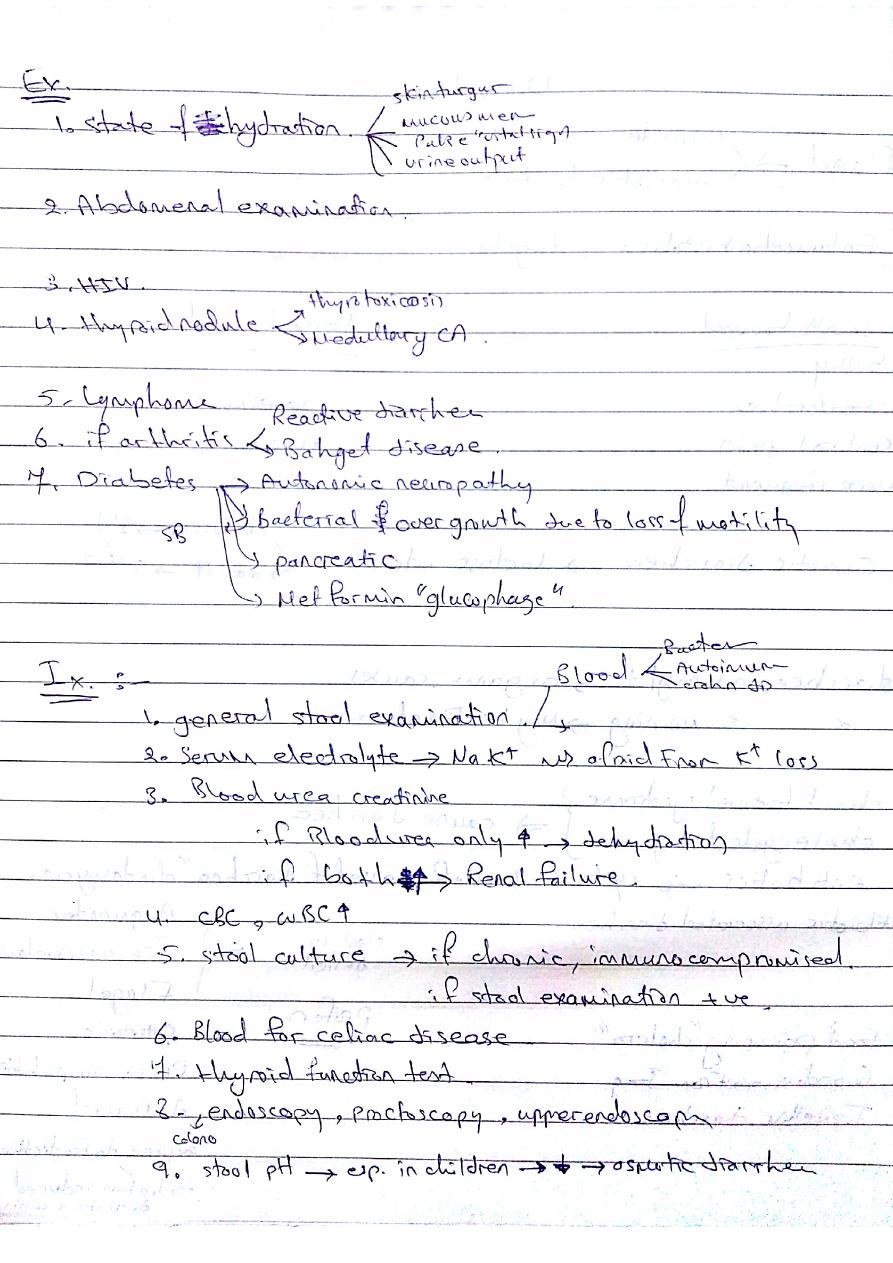 Ex.
skin turgur
1. state of hydration.
mucous mem
Pulse "vital sign
urine output
2. Abdomenal examination.
3. HIV.
thyrotoxicosis
4. thyroid nodule
Medullary CA.
5. Lymphoma
Reactive diarrhea
6. if arthritis
Bahget disease.
7. Diabetes → Autonomic neuropathy
SB
Bacterrial overgrowth due to loss of motility
pancreatic
Metformin "glucophage"
Ix. :-
Bacter
Blood
Autoimum
crohn
1. general stool examination.
2. Serum electrolyte → Na K+ afraid From K+ loss
3. Blood urea creatinine
if Blood urea only ↑ → dehydration
if both ↑ → Renal failure.
4. CBC, WBC ↑
5. stool culture → if chronic, immunocompromised.
if stool examination +ve
6. Blood for celiac disease
7. thyroid function test.
8-, endoscopy, proctoscopy, upper endoscopy
colono
9. stool pH → esp. in children → ↓ → osmotic diarrhea